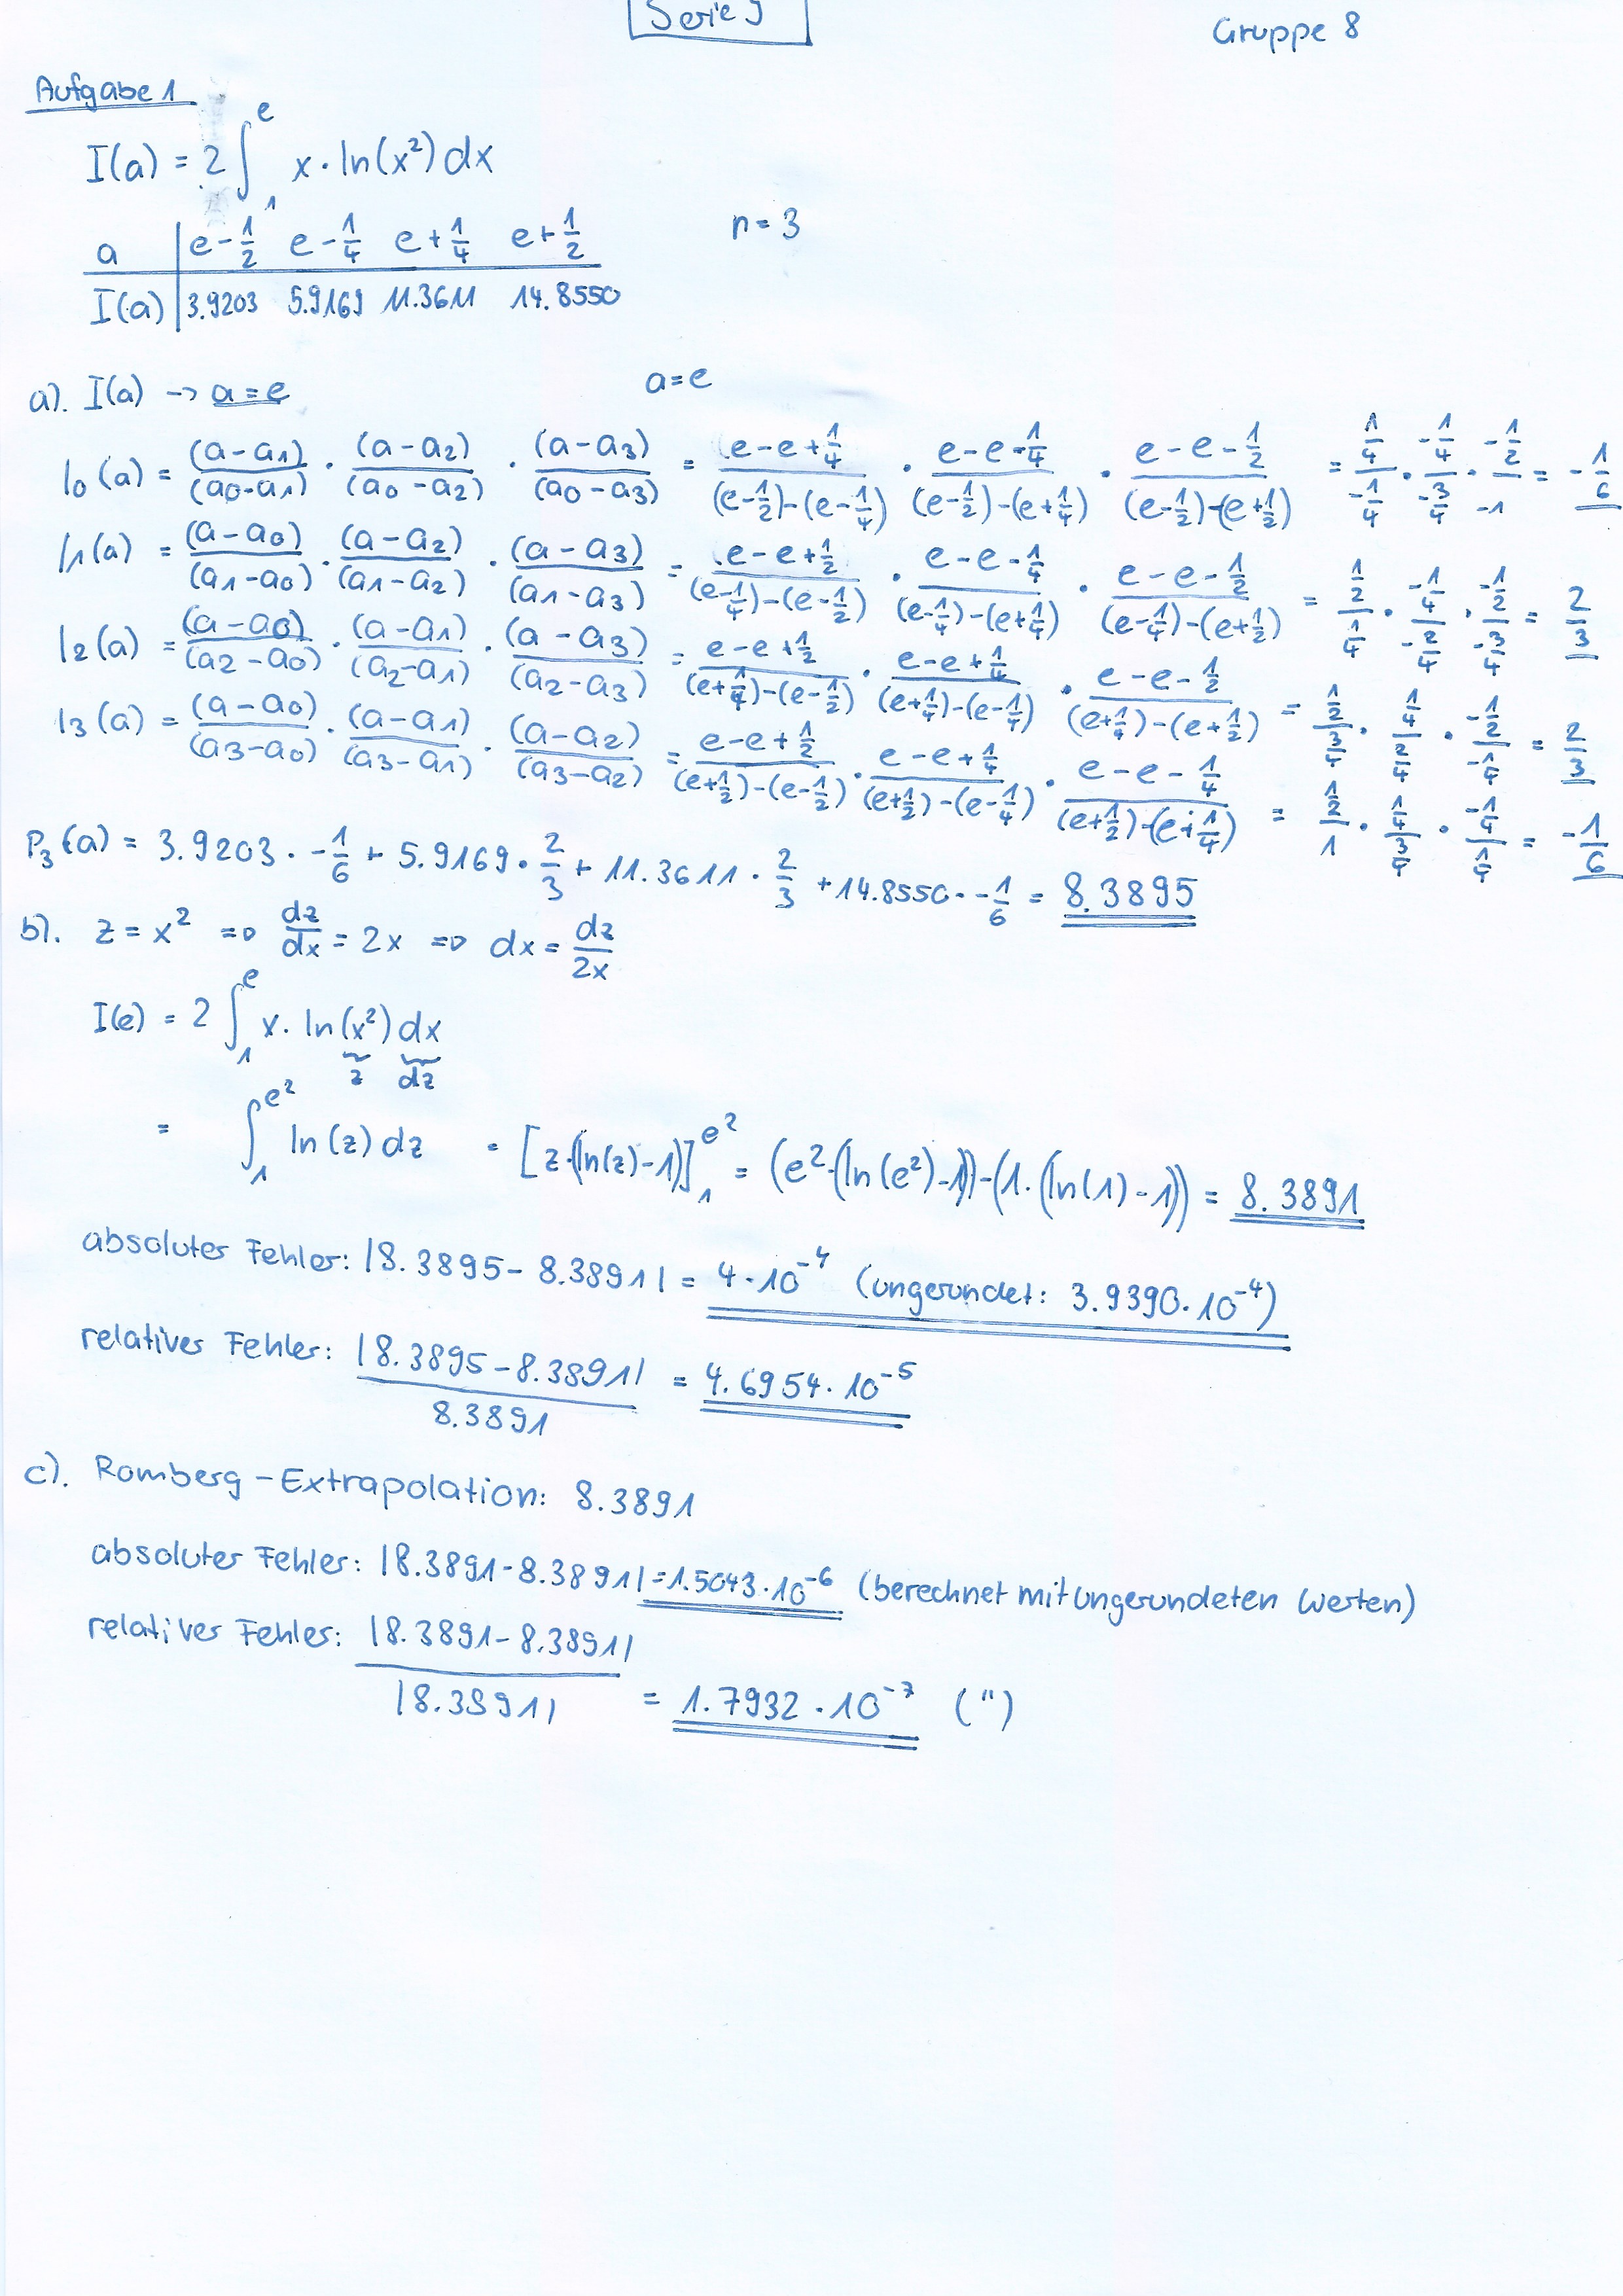 Serie 9
Gruppe 8
Aufgabe 1
I(a) = 2 ∫₁ᵉ x · ln(x²) dx
a | e-1/2 e-1/4 e+1/4 e+1/2 n=3
I(a) | 3.9203 5.9169 11.3611 14.8550
a). I(a) -> a=e a=e
l0(a) = (a-a1)/(a0-a1) · (a-a2)/(a0-a2) · (a-a3)/(a0-a3) = (e-e+1/4)/((e-1/2)-(e-1/4)) · (e-e-1/4)/((e-1/2)-(e+1/4)) · (e-e-1/2)/((e-1/2)-(e+1/2)) = (1/4)/(-1/4) · (-1/4)/(-3/4) · (-1/2)/(-1) = -1/6
l1(a) = (a-a0)/(a1-a0) · (a-a2)/(a1-a2) · (a-a3)/(a1-a3) = (e-e+1/2)/((e-1/4)-(e-1/2)) · (e-e-1/4)/((e-1/4)-(e+1/4)) · (e-e-1/2)/((e-1/4)-(e+1/2)) = (1/2)/(1/4) · (-1/4)/(-2/4) · (-1/2)/(-3/4) = 2/3
l2(a) = (a-a0)/(a2-a0) · (a-a1)/(a2-a1) · (a-a3)/(a2-a3) = (e-e+1/2)/((e+1/4)-(e-1/2)) · (e-e+1/4)/((e+1/4)-(e-1/4)) · (e-e-1/2)/((e+1/4)-(e+1/2)) = (1/2)/(3/4) · (1/4)/(2/4) · (-1/2)/(-1/4) = 2/3
l3(a) = (a-a0)/(a3-a0) · (a-a1)/(a3-a1) · (a-a2)/(a3-a2) = (e-e+1/2)/((e+1/2)-(e-1/2)) · (e-e+1/4)/((e+1/2)-(e-1/4)) · (e-e-1/4)/((e+1/2)-(e+1/4)) = (1/2)/1 · (1/4)/(3/4) · (-1/4)/(1/4) = -1/6
P3(a) = 3.9203 · -1/6 + 5.9169 · 2/3 + 11.3611 · 2/3 + 14.8550 · -1/6 = 8.3895
b). z = x² => dz/dx = 2x => dx = dz/2x
I(e) = 2 ∫₁ᵉ x · ln(x²) dx
z dz
= ∫₁^e² ln(z) dz = [z·(ln(z)-1)]₁^e² = (e²·(ln(e²)-1))-(1·(ln(1)-1)) = 8.3891
absoluter Fehler: |8.3895-8.3891| = 4·10⁻⁴ (ungerundet: 3.9390·10⁻⁴)
relativer Fehler: |8.3895-8.3891| / 8.3891 = 4.6954·10⁻⁵
c). Romberg-Extrapolation: 8.3891
absoluter Fehler: |8.3891-8.3891|=1.5043·10⁻⁶ (berechnet mit ungerundeten Werten)
relativer Fehler: |8.3891-8.3891| / |8.3891| = 1.7932·10⁻⁷ (")